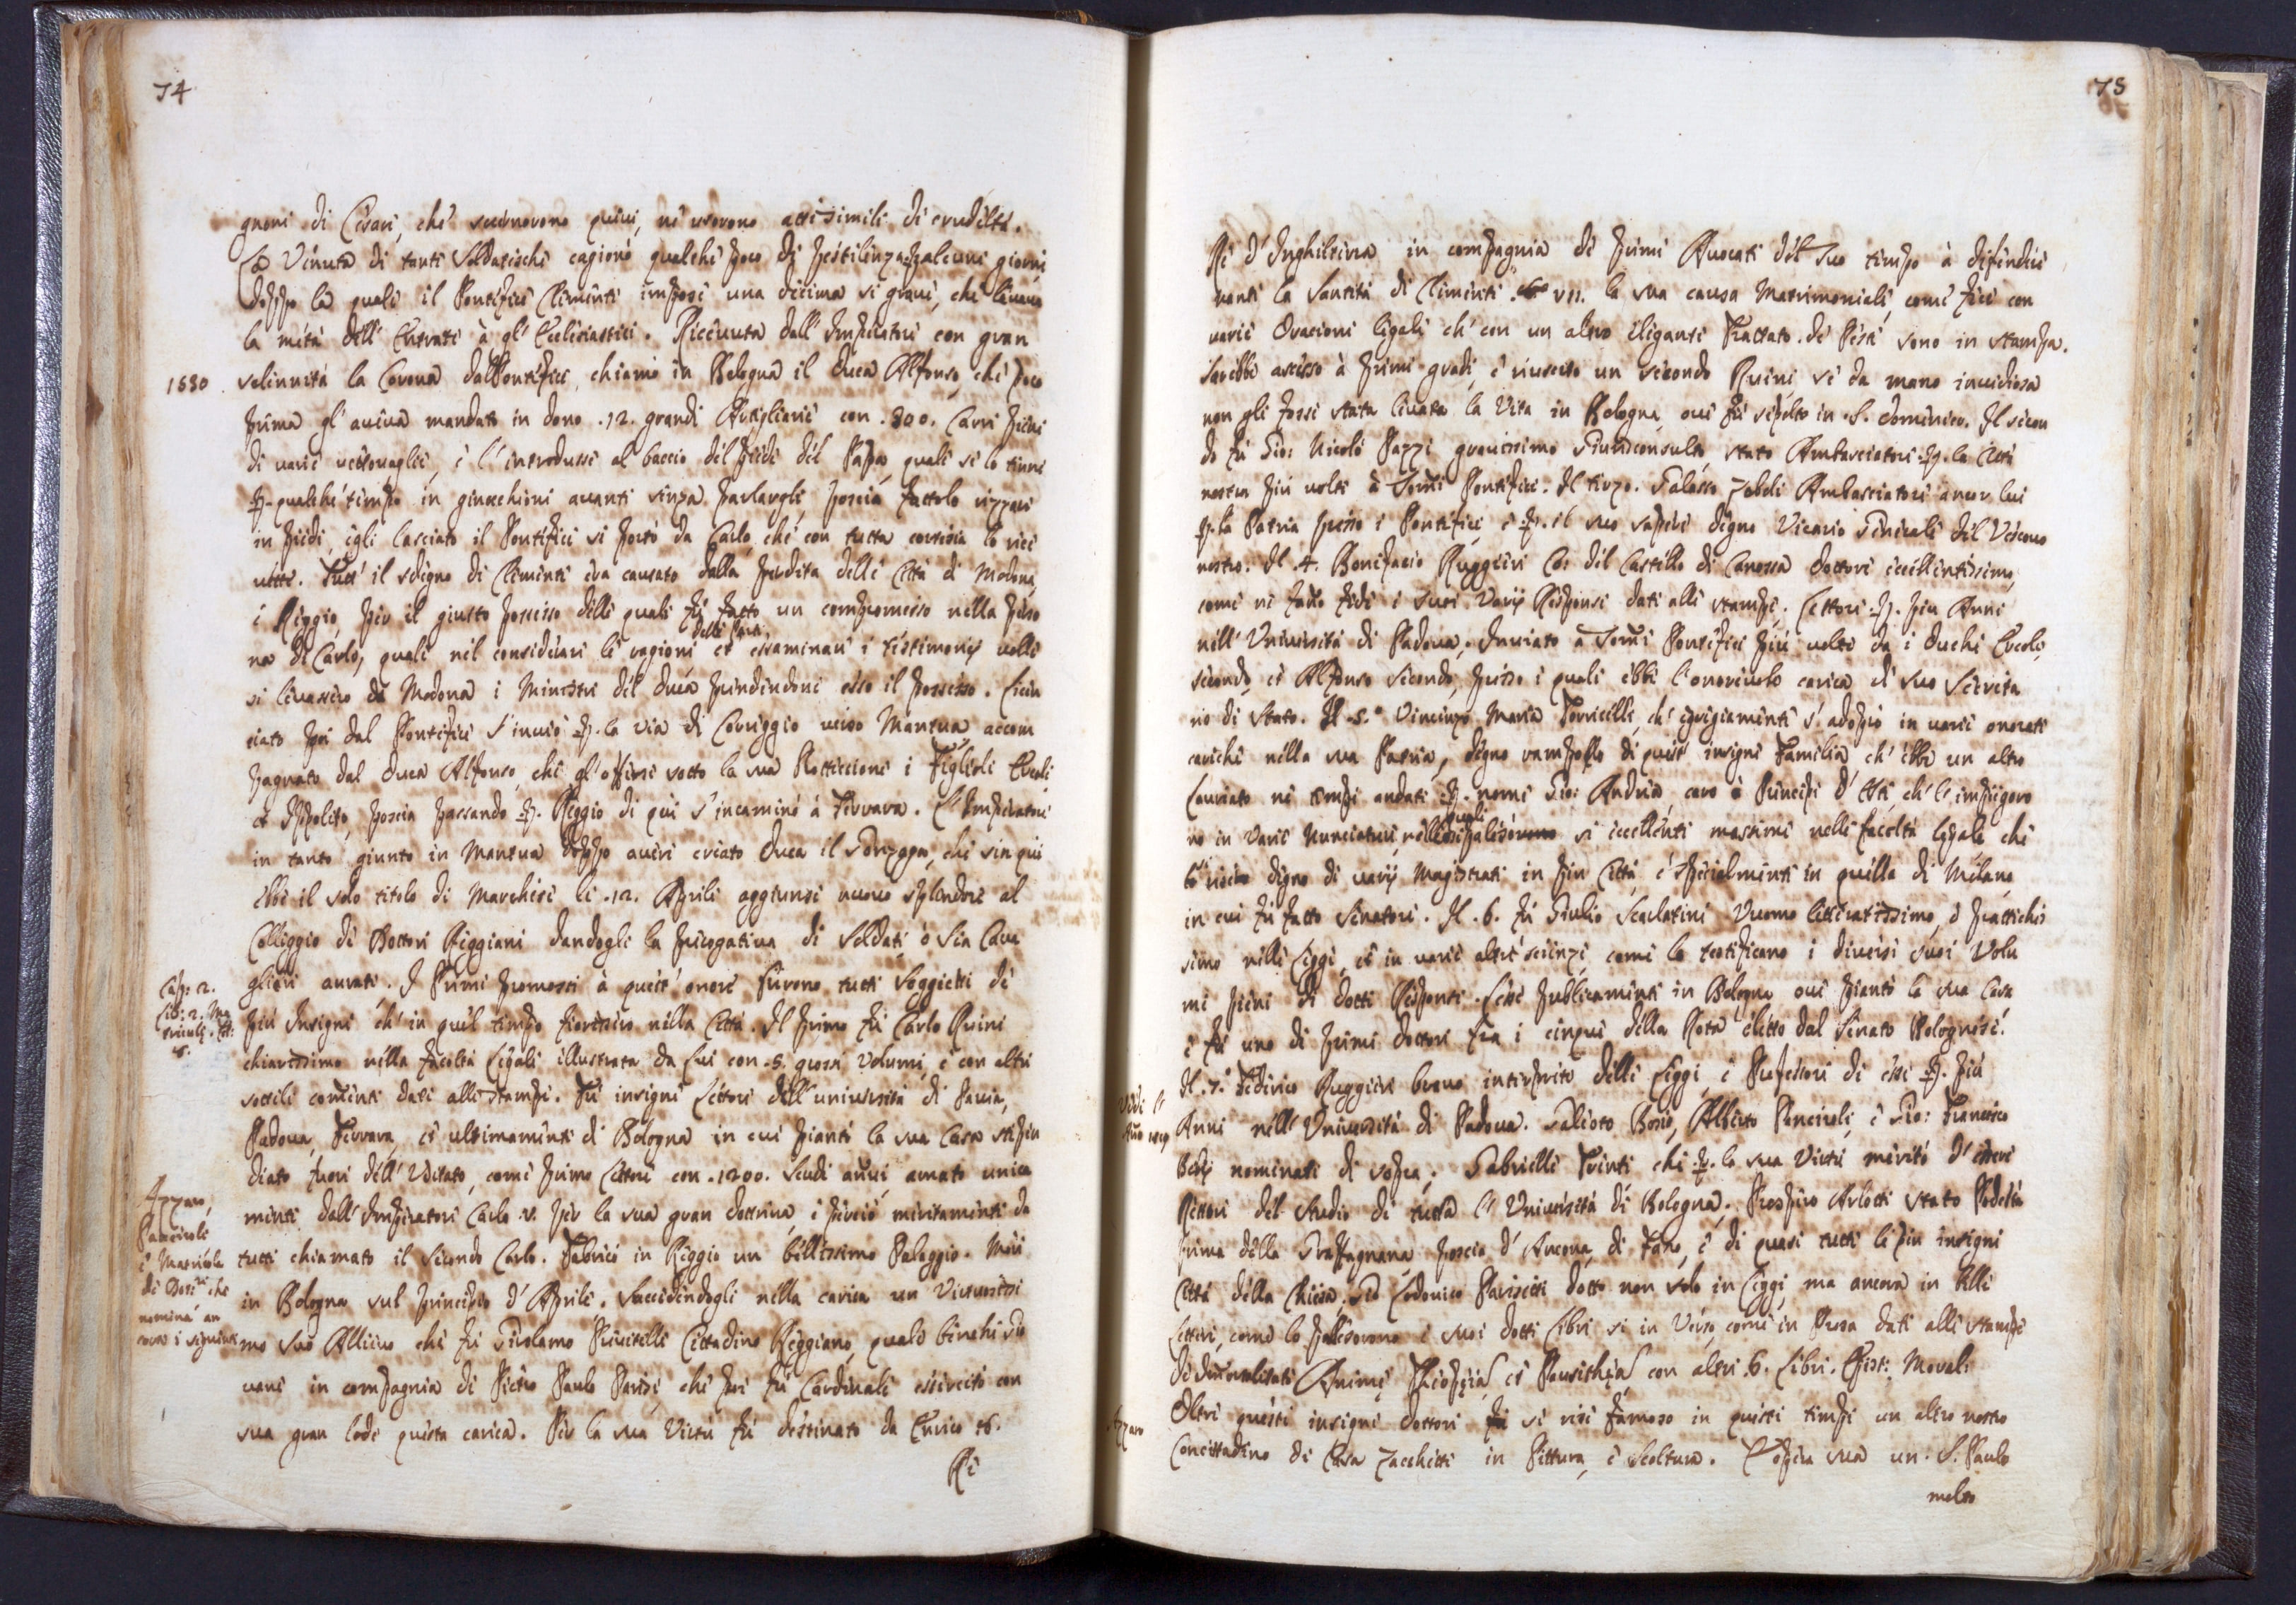 74
gnoni di Cesare, che suernorono quiui, ne usorono atti simili di crudeltà.
La Venuta di tanti Soldateschi cagionò qualche poco di pestilenza p. alcuni giorni
doppo la quale il Pontefice Clemente impose una decima si graue, che leuaua
la metà dell' Entrate à gl' Ecclesiastici. Riceuuta dall' Imperatore con gran
1530 solennità la Corona dal Pontefice, chiamò in Bologna il Duca Alfonso, che poco
prima gl' aueua mandato in dono .12. grandi Artiglierie con .300. Carri pieni
di uarie uettouaglie, e l' introdusse al baccio del piede del Papa, quale se lo tenne
p. qualche tempo in ginocchioni auanti senza parlargli, poscia fattolo rizzare
in piedi, egli lasciato il Pontefice si portò da Carlo, che con tutta cortesia lo rice
uette. Tutt' il sdegno di Clemente era causato dalla perdita delle Città di Modena,
e Reggio, per il giusto possesso delle quali fù fatto un compromesso nella perso
na di Carlo, quale nel considerare le ragioni delle Parti et essaminare i testimonij uolle
si leuassero da Modena i Ministri del Duca prendendone esso il possesso. Licen
ciato poi dal Pontefice s' inuiò p. la via di Correggio uerso Mantua, accom
pagnato dal Duca Alfonso, che gl' offerse sotto la sua Protteccione i Figlioli Ercole,
et Ippolito, poscia passando p. Reggio di quì s' incaminò à Ferrara. L' Imperatore
in tanto giunto in Mantua doppo auere creato Duca il Gonzaga, che sin qui
ebbe il solo titolo di Marchese li .12. Aprile aggiunse nuouo splendore al
Colleggio de Dottori Reggiani dandogli la prerogatiua di Soldati, ò sia Caua
Cap: 2. glieri aurati. I Primi promossi à quest' onore furono tutti Soggietti de
Lib: 2. Ma più Insigni ch' in quel tempo fiorissero nella Città. Il primo fù Carlo Ruini
chiarissimo nella facoltà Legale illustrata da Lui con .5. grossi Volumi, e con altri
sottili comenti dati alle stampe. Fù insigne Lettore dell' uniuersità di Pauia,
Padoua, Ferrara, et ultimamente di Bologna in cui piantò la sua Casa stipen
diato fuori dell' Usitato, come primo Lettore con .1200. Scudi annui, amato unica
Azzaro, mente dall' Imperatore Carlo .V. per la sua gran dottrina, e perciò meritamente da
Panciroli tutti chiamato il Secondo Carlo. Fabricò in Reggio un bellissimo Palaggio. Morì
in Bologna sul principio d' Aprile. Succedendogli nella carica un Virtuosissi
mo suo Allieuo che fù Girolamo Scuitelli Cittadino Reggiano, quale benche Gio
uane in compagnia di Pietro Paulo Parisi, che poi fù Cardinale essercitò con
sua gran lode questa carica. Per la sua Virtù fù destinato da Enrico .8.
Rè
75
Rè d' Inghilterra in compagnia de primi Auocati del suo tempo à difendere
uanti la Santità di Clemente VII. la sua causa Matrimoniale, come fece con
uarie Oracioni legali ch' con un altro elegante Trattato de Peste sono in stampa.
Sarebbe asceso à primi gradi, e riuscito un secondo Ruini, se da mano inuidiosa
non gli fosse stata leuata la Vita in Bologna, oue fù sepolto in S. Domenico. Il secon
do fù Gio: Nicolò Pazzi grauissimo Giurisconsulto, stato Ambasciatore p. la Città
nostra più uolte à Sommi Pontefici. Il terzo. Galasso Zoboli Ambasciatore ancor lui
p. la Patria presso i Pontefici, e p. il suo sapere degno Vicario Generale del Vescouo
nostro. Il .4. Bonifacio Ruggieri Co: del Castello di Canossa Dottore eccellentissimo,
come ne fano fede i suoi Varij Responsi dati alle stampe. Lettore p. più Anni
nell' Uniuersità di Padoua. Inuiato à Sommi Pontefici più uolte da i Duchi Ercole
secondo, et Alfonso Secondo, presso i quali ebbe l' onoreuole carica di suo Secreta
rio di Stato. Il .5.° Vincenzo Maria Torricelli, ch' egregiamente s' adoprò in uarie onorate
cariche nella sua Patria, degno rampollo di quest' insigne Familia ch' ebbe un altro
Laureato ne tempi andati p. nome Gio: Andrea, caro à Principi d' Este, ch' l' impiegoro
no in Varie Nunciature, nelle quali si palesò si eccellente massime nelle facoltà Legale che
lo fecero degno di uarij Magistrati in più Città, e specialmente in quella di Milano,
in cui fù fatto Senatore. Il .6. fù Giulio Scarlatini Vuomo litteratissimo, e pratichis
simo nelle Leggi, et in uarie altre scienze, come lo testificano i diuersi suoi Volu
mi pieni di dotti Responsi. Lesse publicamente in Bologna oue piantò la sua Casa
e fù uno de primi Dottori fra i cinque della Rota eletto dal Senato Bolognese.
Il .7.° Federico Ruggieri brauo interprete delle Leggi, e Professore di esse p. più
Anni nell' Uniuersità di Padoua. Galioto Bosio, Alberto Pancirole, e Gio: Francesco
nominati di sopra. Gabrielle Trinti che p. la sua Virtù meritò d' essere
Rettore del Studio di tutta l' Uniuersità di Bologna. Prospero Arlotti stato Podestà
prima della Graffagnana poscia d' Ancona, di Fano, e di quasi tutte le più insigni
Città della Chiesa. Lodouico Parisetti dotto non solo in Leggi ma ancora in Belle
Lettere, come lo palesorono i suoi dotti Libri si in Verso, come in Prosa dati alle stampe
De Immortalitate Animę Theopęia et Pausithęa con altri .6. Libri. Epist: Morali
Azzaro Oltre questi insigni Dottori si rese famoso in questi tempi un altro nostro
Concittadino di Casa Zacchetti in Pittura, e Scoltura. È opera sua un S. Paulo
molto